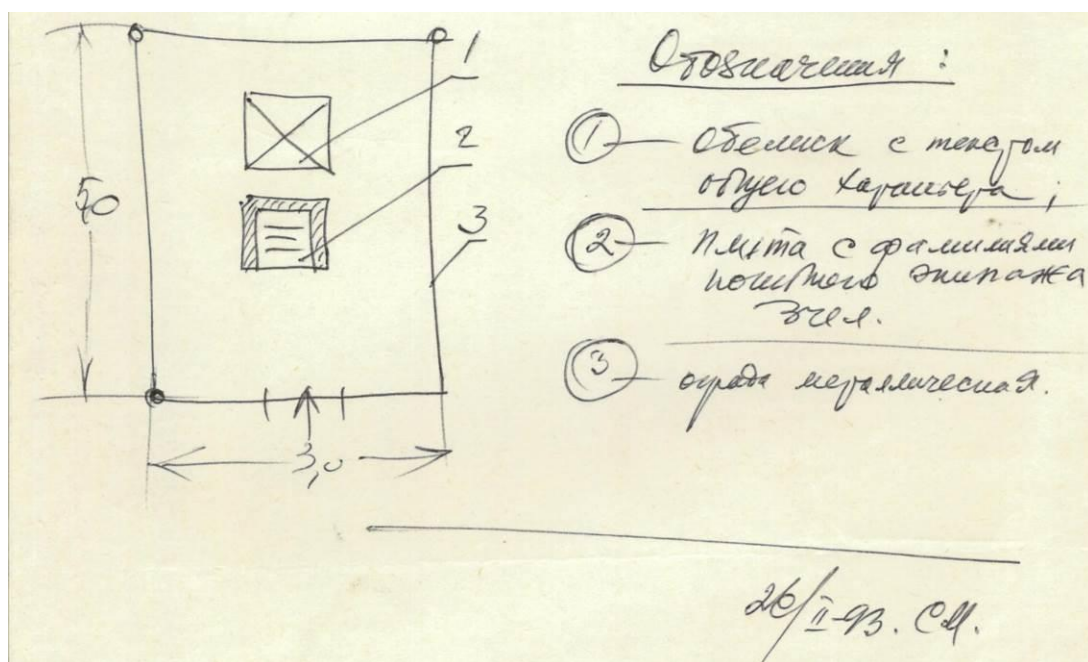 1
2
3
5,0
3,0
Обозначения :
1 — Обелиск с текстом
общего характера ;
2 — Плита с фамилиями
погибшего экипажа
3 чел.
3 — ограда металлическая.
26/II-93. СМ.